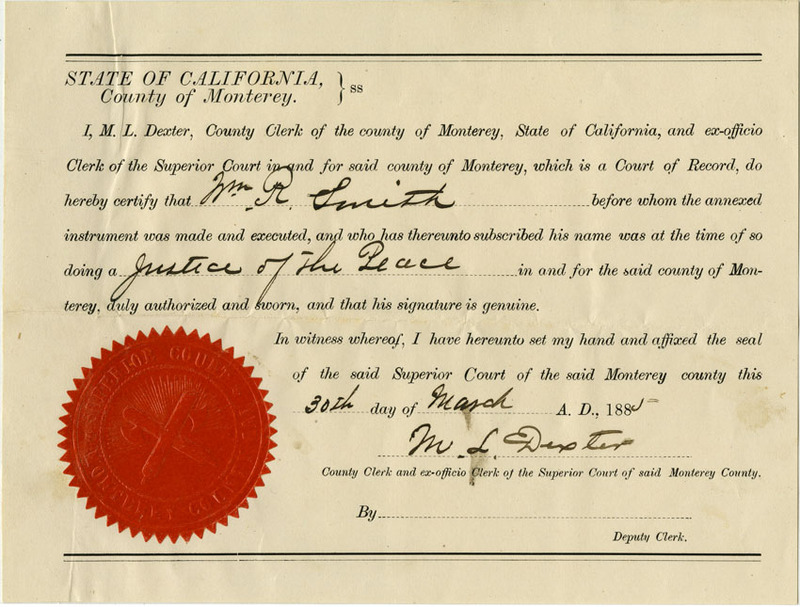 STATE OF CALIFORNIA,
County of Monterey. } ss
I, M. L. Dexter, County Clerk of the county of Monterey, State of California, and ex-officio
Clerk of the Superior Court in and for said county of Monterey, which is a Court of Record, do
hereby certify that Wm. R. Smith before whom the annexed
instrument was made and executed, and who has thereunto subscribed his name was at the time of so
doing a Justice of the Peace in and for the said county of Mon-
terey, duly authorized and sworn, and that his signature is genuine.
In witness whereof, I have hereunto set my hand and affixed the seal
of the said Superior Court of the said Monterey county this
30th day of March A. D., 1885
M. L. Dexter
County Clerk and ex-officio Clerk of the Superior Court of said Monterey County.
By
Deputy Clerk.
SUPERIOR COURT